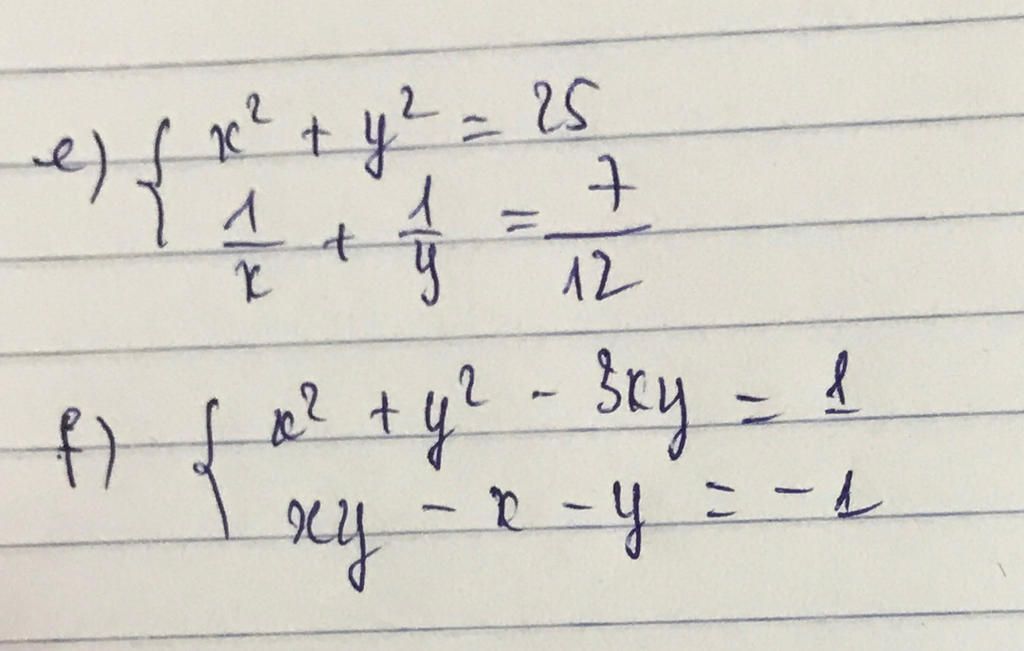 e) { x² + y² = 25
1/x + 1/y = 7/12
f) { x² + y² - 3xy = 1
xy - x - y = -1